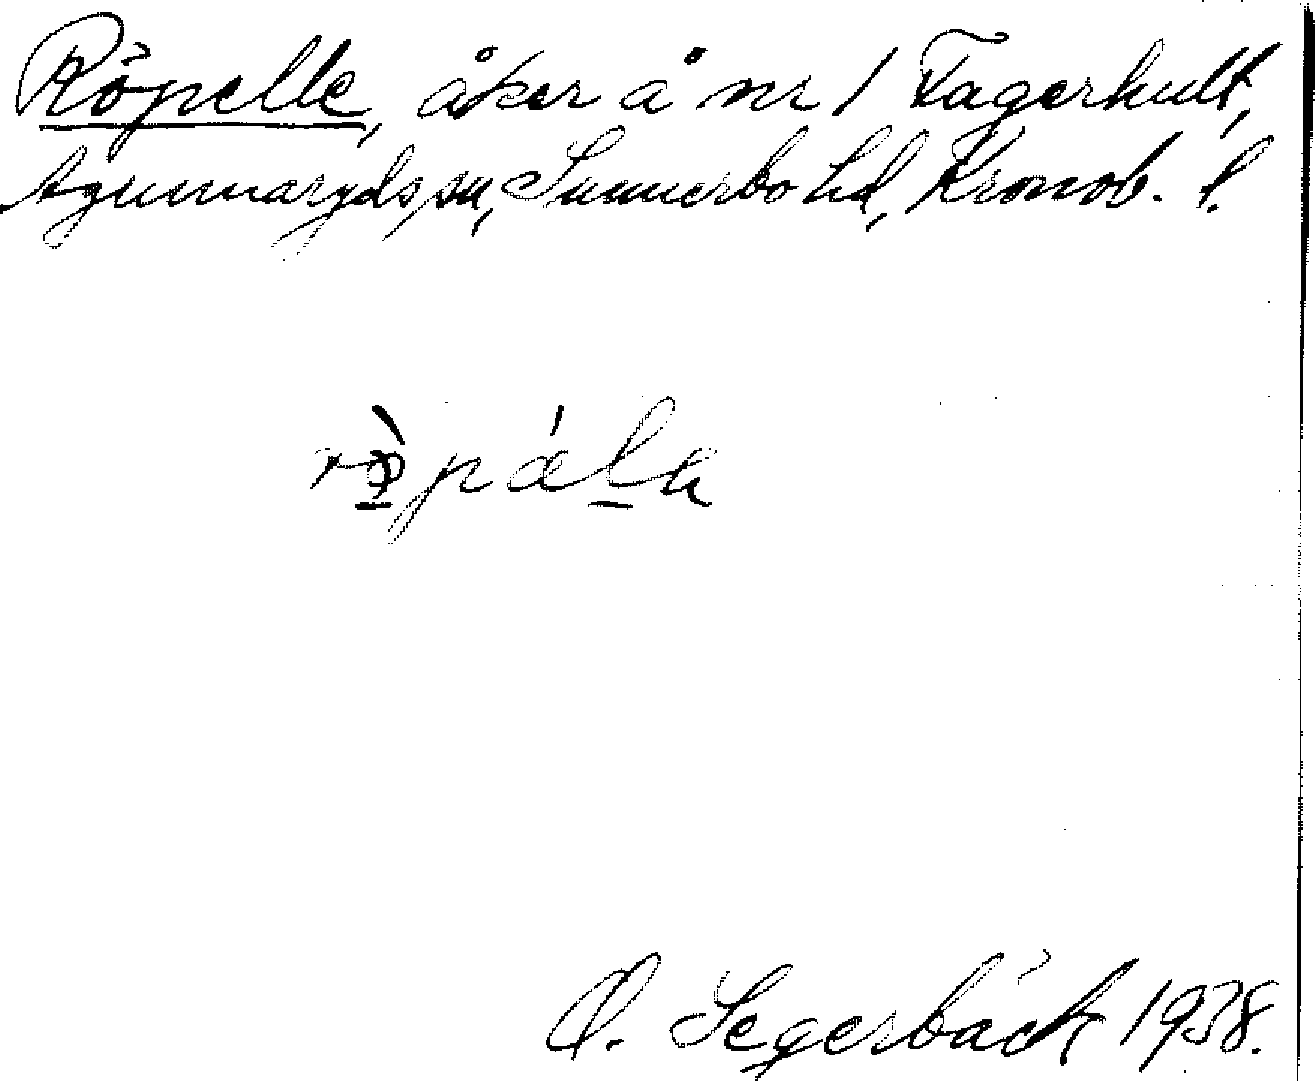 Röpelle, åker å nr 1 Fagerhult,
Agunnaryds sn, Sunnerbo hd, Kronob. l.
O. Segerbäck 1938.